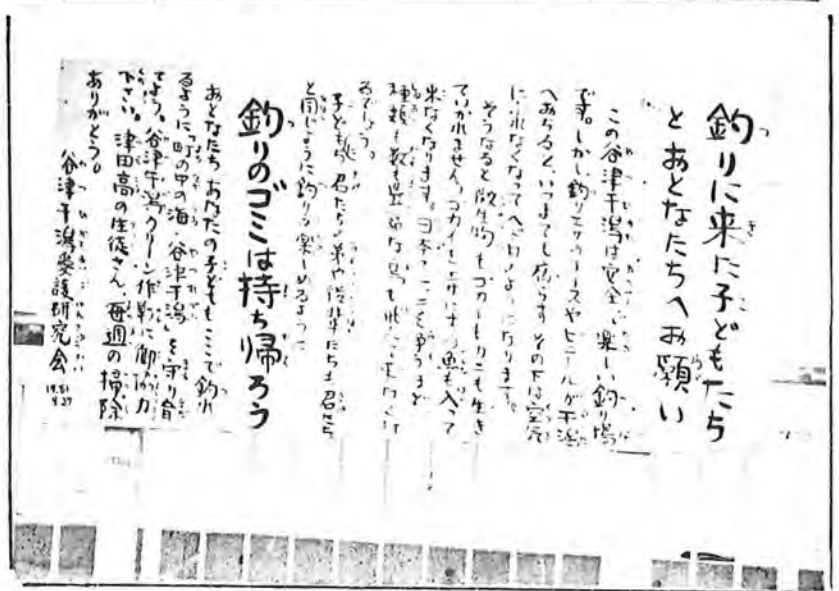 釣りに来た子どもたち
とおとなたちへお願い
この谷津干潟は安全で楽しい釣り場
です。しかし釣りエサケースやビニールが干潟
へおちると、いつまでも腐らずその下は空気
に
なくなって
ようになります。
そうなると底生物もゴカイもカニも生き
ていかれません。ゴカイをエサにする魚も入って
来なくなります。日本で一、二を争うほど
種類も数も豊富な鳥も
るでしょう。
子どもら、君たちの弟や後輩たちも君たち
と同じように釣りを楽しめるように
釣りのゴミは持ち帰ろう
おとなたち、あなたの子どももここで釣れ
るように、町の中の海「谷津干潟」を守り育
てよう。谷津干潟クリーン作戦に御協力
下さい。津田高の生徒さん、毎週の掃除
ありがとう。
谷津干潟愛護研究会